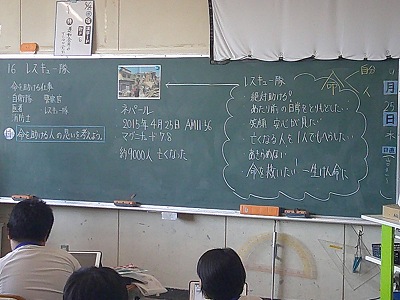 16 レスキュー隊
命を助ける仕事
自衛隊 警察官
医者 レスキュー隊
消防士
命を助ける人の思いを考えよう。
ネパール
2015年4月25日 AM11:56
マグニチュード7.8
約9000人 亡くなった
レスキュー隊
命
自分
人
・絶対助ける!
・あたり前の日常をとりもどしたい
・笑顔 安心が見たい
・亡くなる人を1人でもへらしたい
・あきらめない
・命を救いたい! 一生けん命に
月
25
日
木